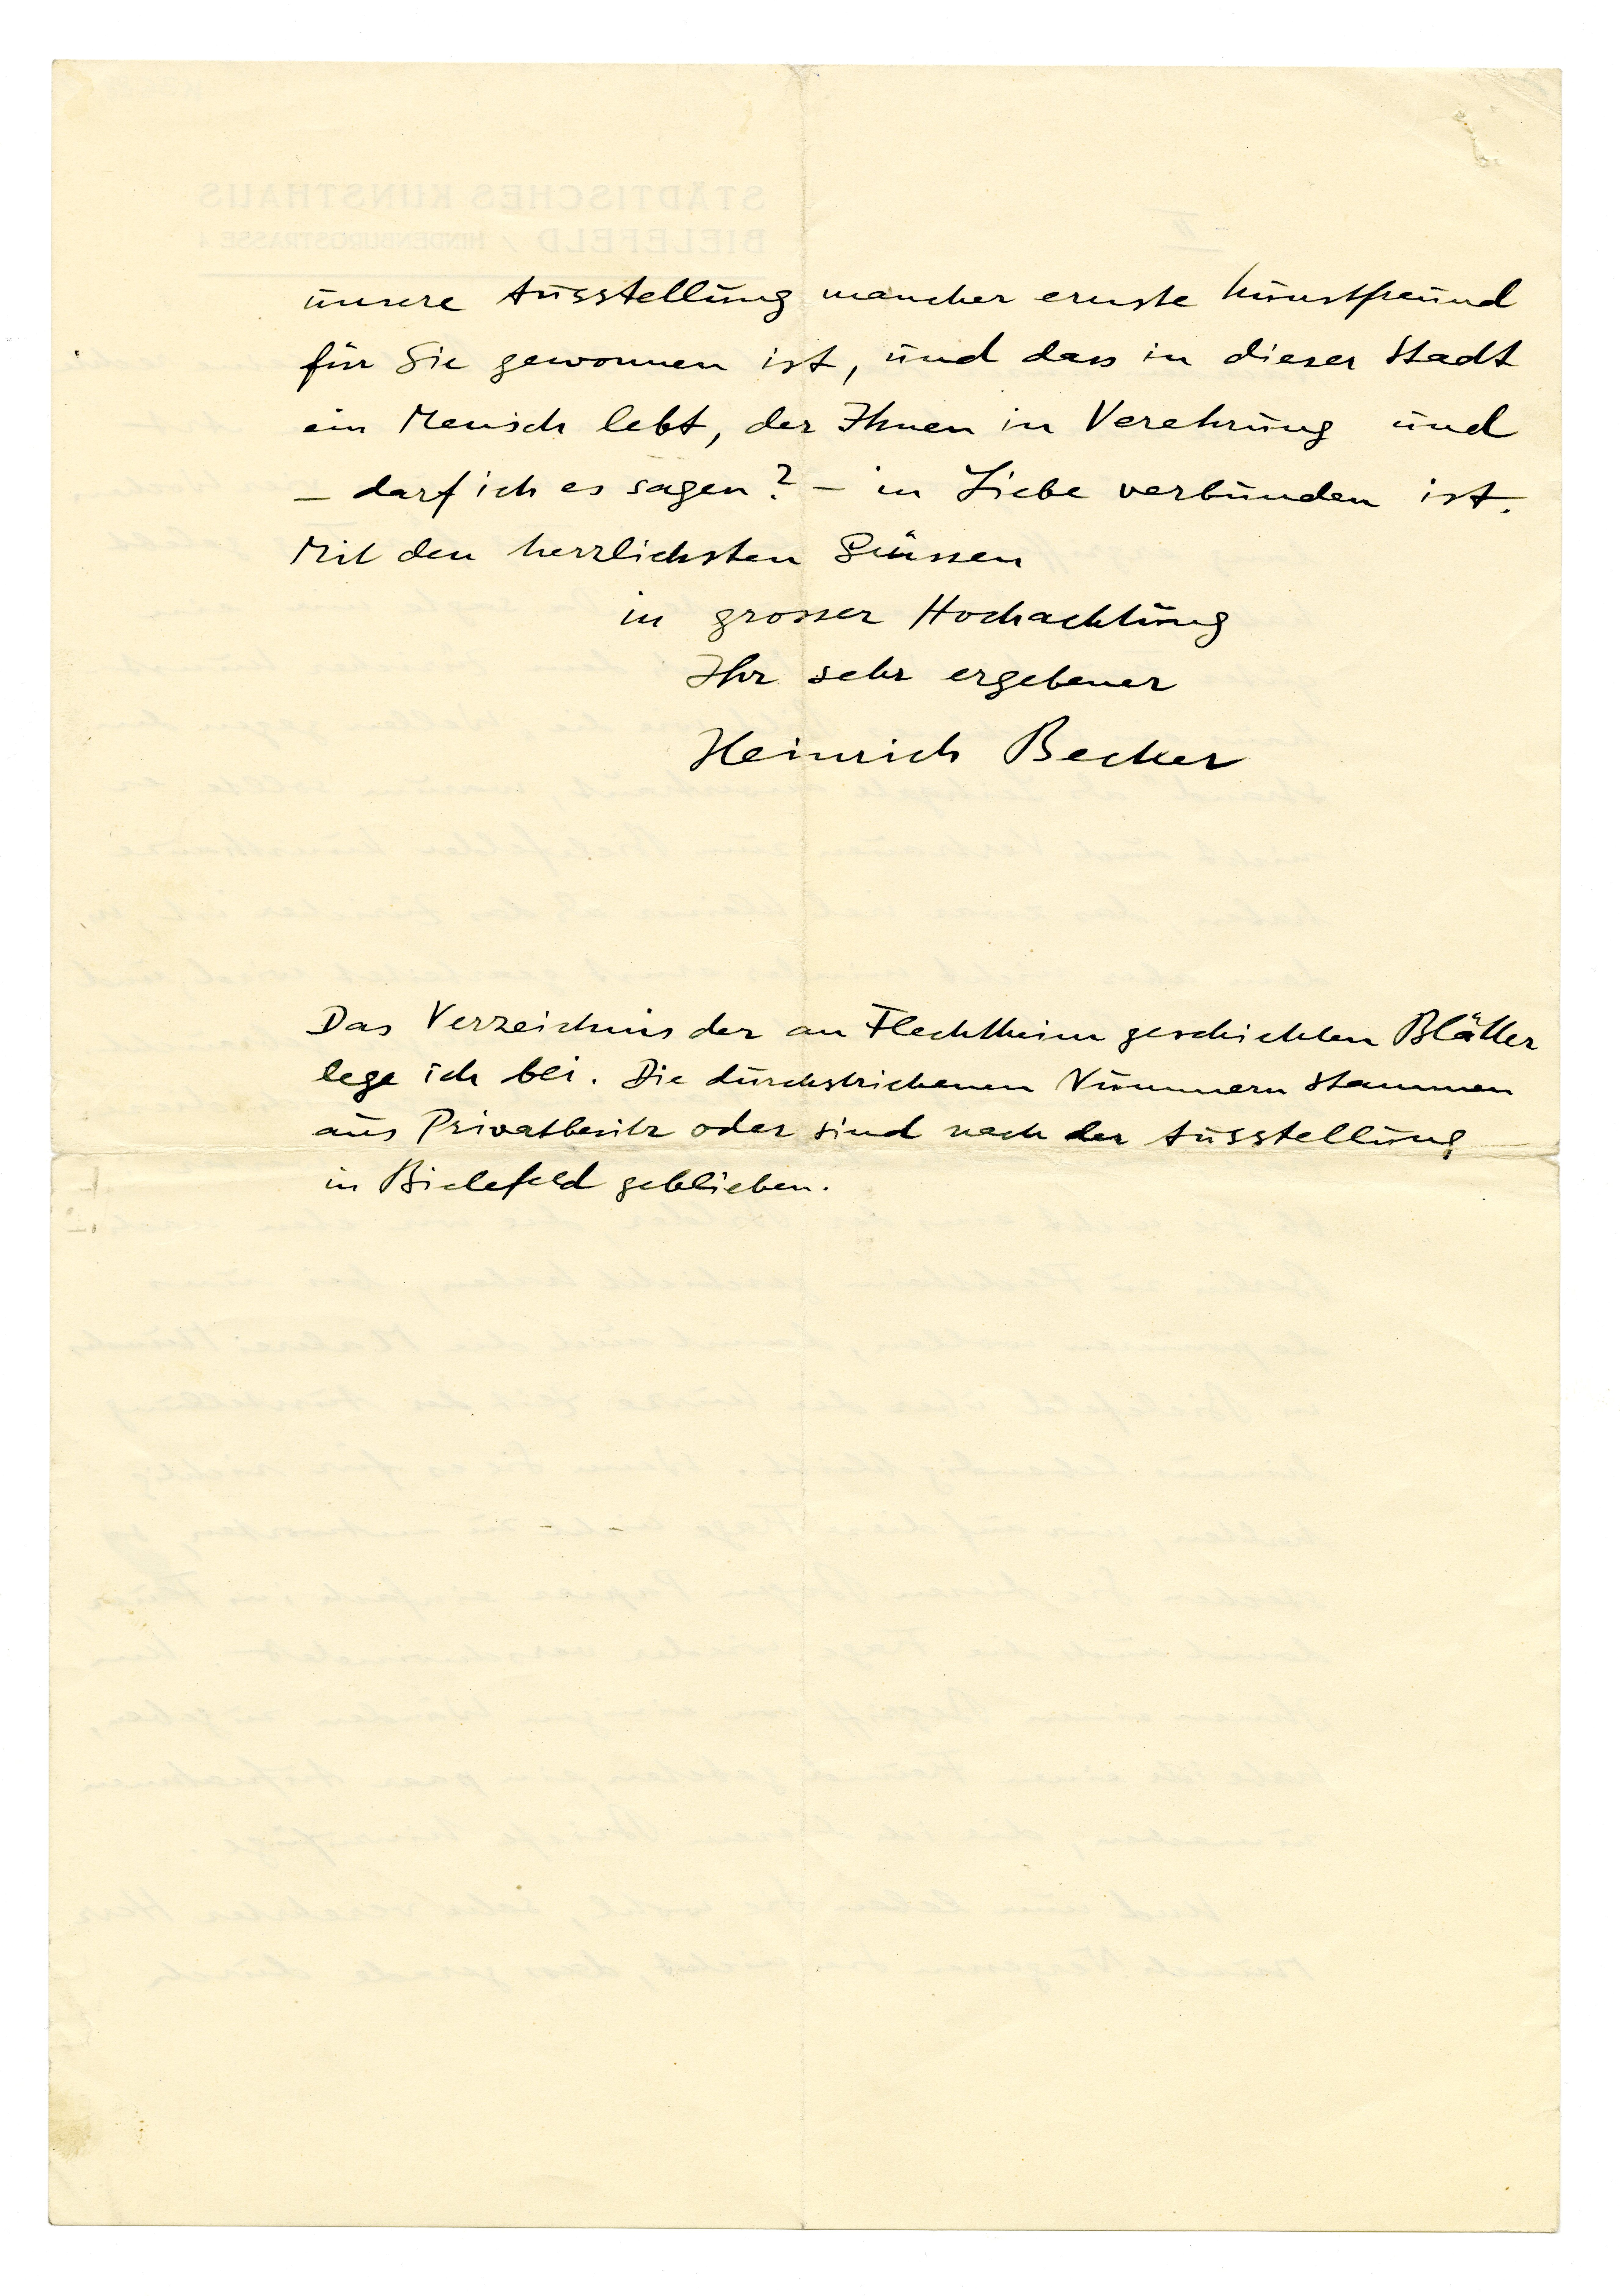 unsere Ausstellung mancher ernste Kunstfreund
für Sie gewonnen ist, und dass in dieser Stadt
ein Mensch lebt, der Ihnen in Verehrung und
– darf ich es sagen? – in Liebe verbunden ist.
Mit den herzlichsten Grüssen
in grosser Hochachtung
Ihr sehr ergebener
Heinrich Becker
Das Verzeichnis der an Flechtheim geschickten Blätter
lege ich bei. Die durchstrichenen Nummern stammen
aus Privatbesitz oder sind nach der Ausstellung
in Bielefeld geblieben.